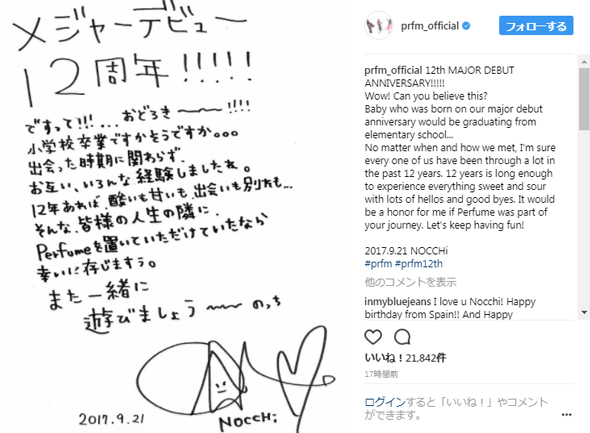 メジャーデビュー
12周年!!!!!
ですって!!!...おどろき〜〜〜!!!!
小学校卒業ですかそうですか。。。
出会った時期に関わらず、
お互い、いろんな経験しましたね。
12年あれば、酸いも甘いも、出会いも別れも...
そんな、皆様の人生の隣に、
Perfumeを置いていただけていたなら
幸いに存じますぅ。
また一緒に
遊びましょう〜〜 のっち
2017.9.21
NOCCHi
prfm_official
フォローする
prfm_official 12th MAJOR DEBUT
ANNIVERSARY!!!!!
Wow! Can you believe this?
Baby who was born on our major debut
anniversary would be graduating from
elementary school...
No matter when and how we met, I'm sure
every one of us have been through a lot in
the past 12 years. 12 years is long enough
to experience everything sweet and sour
with lots of hellos and good byes. It would
be a honor for me if Perfume was part of
your journey. Let's keep having fun!
2017.9.21 NOCCHi
#prfm #prfm12th
他のコメントを表示
inmybluejeans I love u Nocchi! Happy
birthday from Spain!! And Happy
いいね！21,842件
17時間前
ログインすると「いいね！」やコメント
ができます。